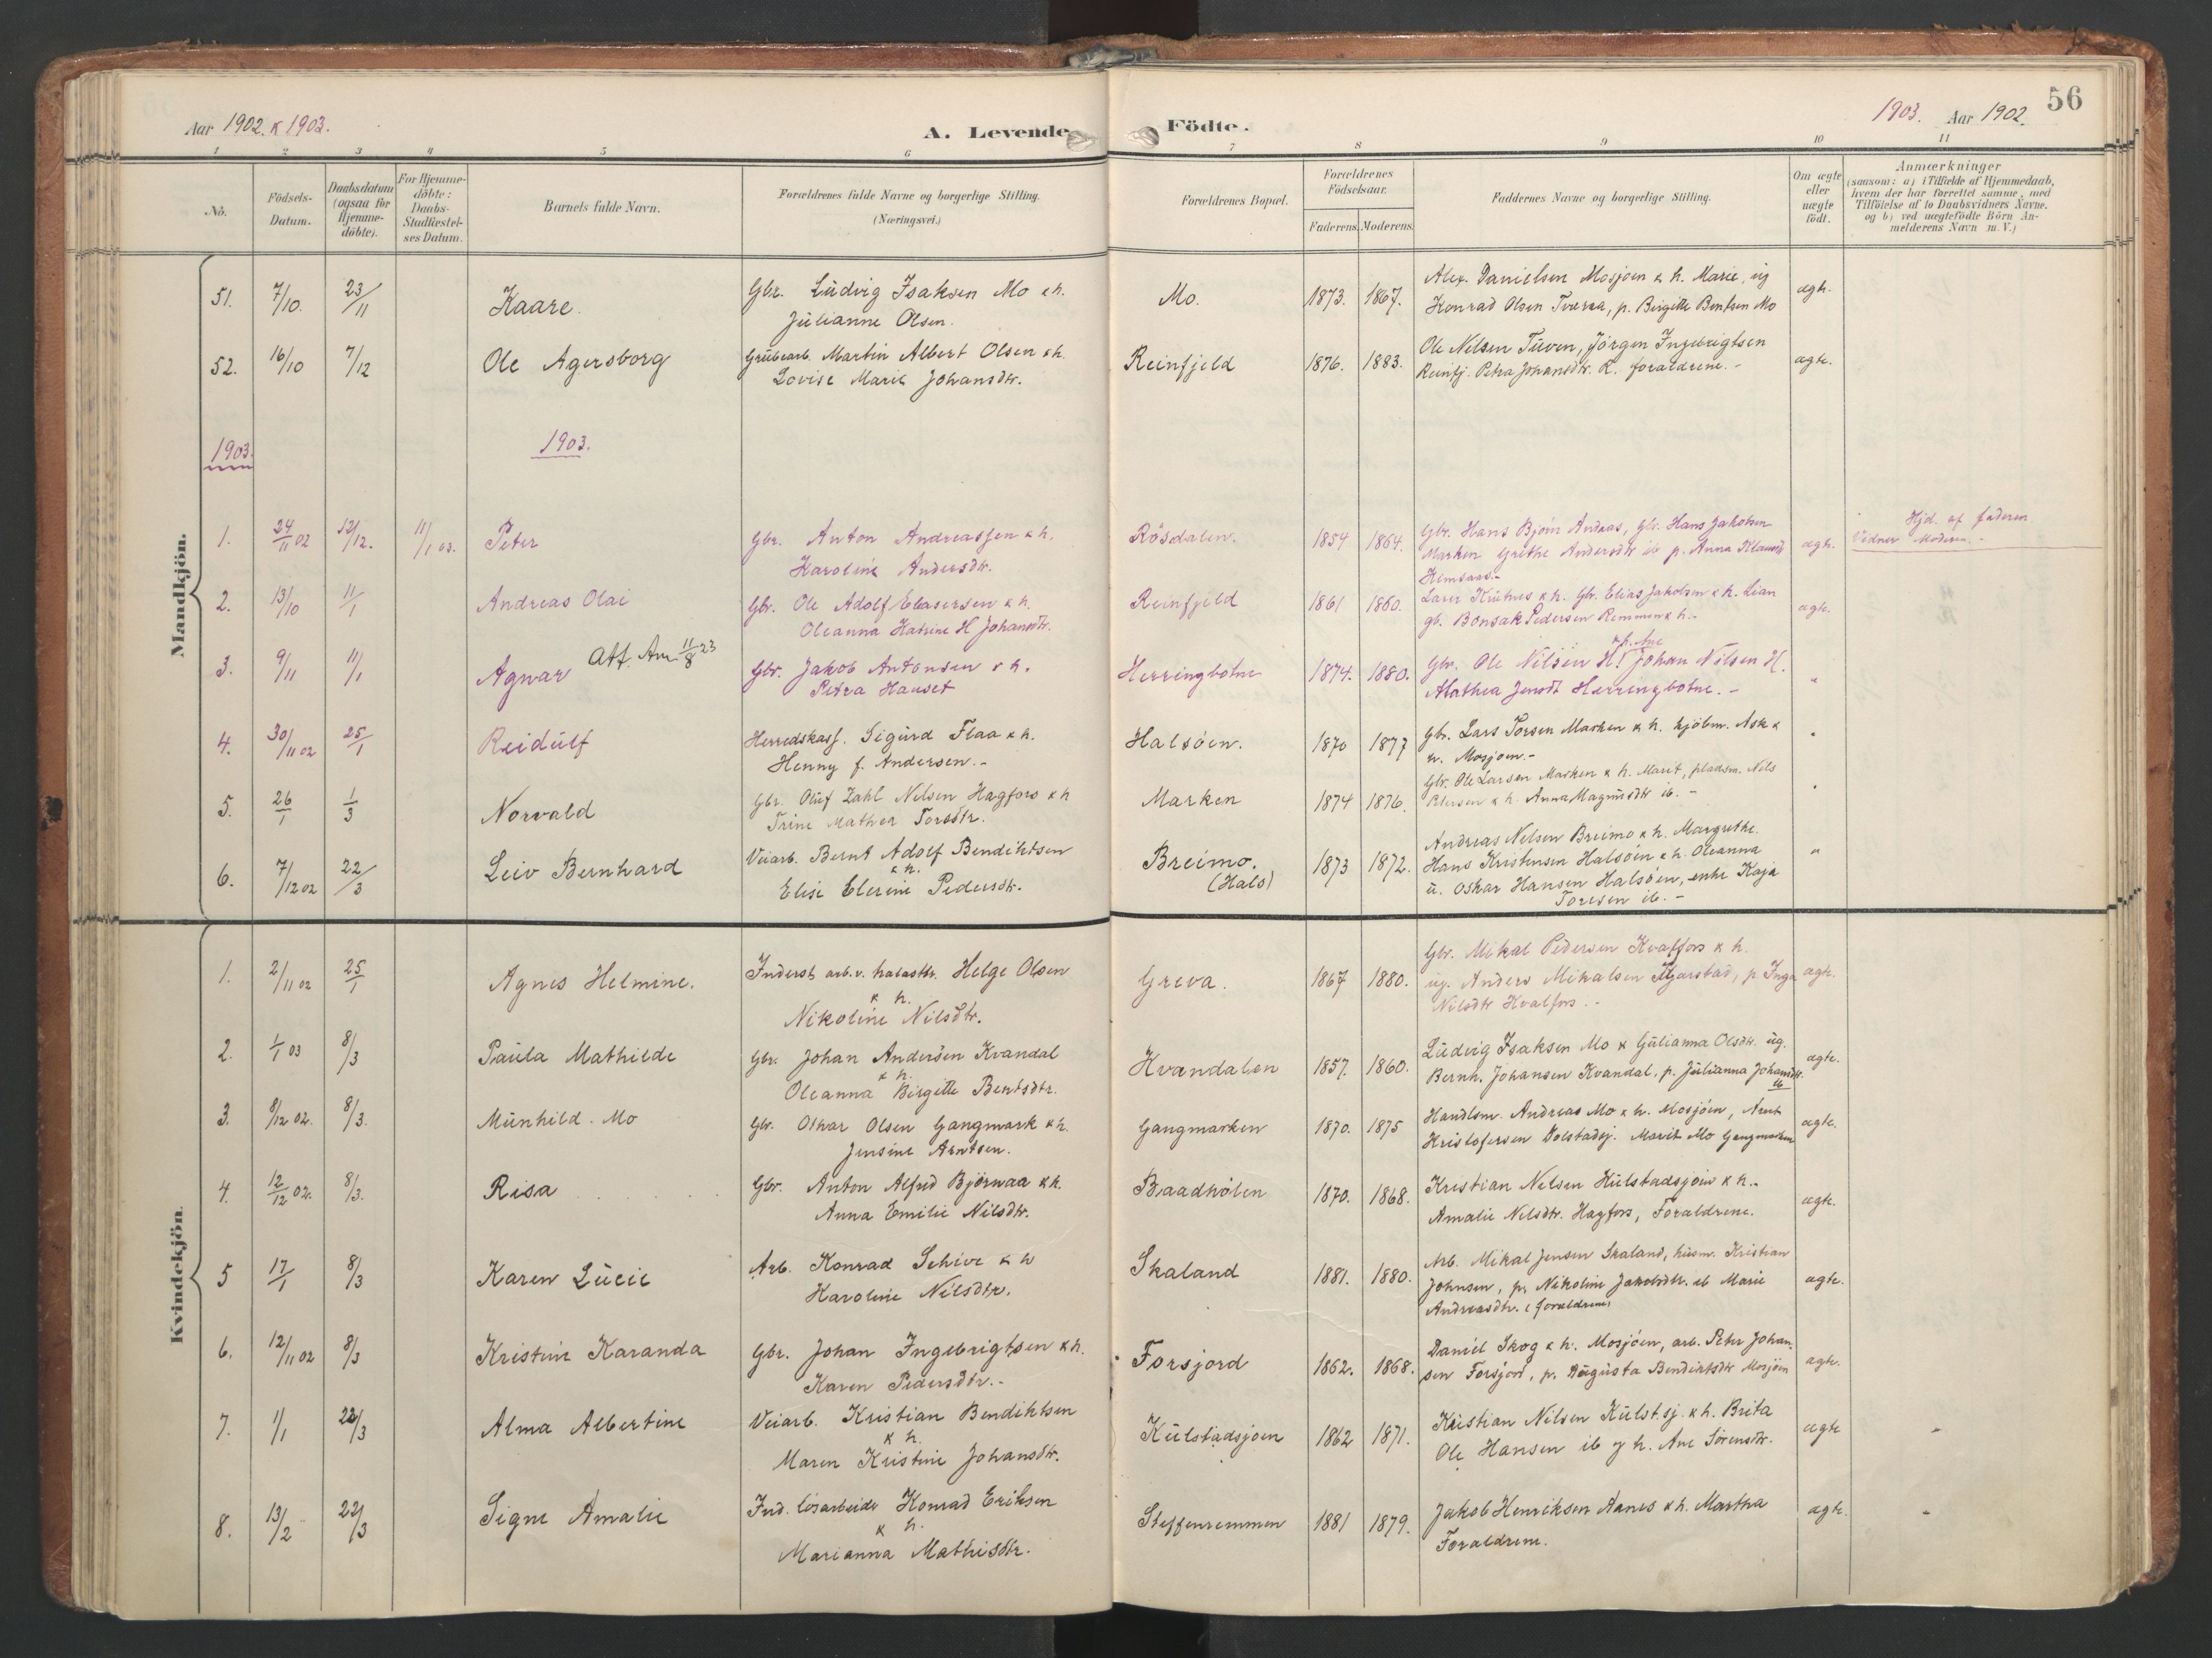 56
Aar 1902. & 1903.
A. Levende Födte.
1903. Aar 1902.
1 2 3 4 5 6 7 8 9 10 11
No.
Födsels-Datum.
Daabsdatum (ogsaa for Hjemme-döbte).
For Hjemme-döbte: Daabs-Stadfæstel-ses Datum.
Barnets fulde Navn.
Forældrenes fulde Navne og borgerlige Stilling. (Næringsvei.)
Forældrenes Bopæl.
Forældrenes Födselsaar.
Faderens. Moderens.
Faddernes Navne og borgerlige Stilling.
Om ægte eller uægte födt.
Anmærkninger
(saasom: a) i Tilfælde af Hjemmedaab, hvem der har forrettet samme, med Tilföielse af to Daabsvidners Navne, og b) ved uægtefödte Börn An-melderens Navn m. V.)
Mandkjön.
51. 7/10. 23/11 Kaare. Gbr. Ludvig Isaksen Mo & h.
Julianne Olsen.
Mo. 1873. 1867. Alex. Danielsen Mosjøen & h. Marie, ug
Konrad Olsen Tverra, p. Birgitte Bentsen Mo
ægte.
52. 16/10 7/12 Ole Agersborg Grubearb. Martin Albert Olsen & h.
Lovise Marie Johansdtr.
Reinfjeld 1876. 1883. Ole Nilsen Tuven, Jörgen Ingebrigtsen
Reinfj. Petra Johansdtr. R. forældrene. -
ægte.
1903. 1903.
1. 24/11 02 12/12. 11/1 03. Peter Gbr. Anton Andreassen & h.
Karoline Andersdtr.
Rösdalen. 1854 1864. Gbr. Hans Bjoin Andaas, Gbr. Hans Jakobsen
Marken Grethe Andersdtr ib p. Anna Klausdtr
ægte.
Hjd. af faderen
Vidner Moderen. -
2. 13/10 11/1 Andreas Olai Gbr. Ole Adolf Eliasersen & h.
Oleanna Katrine H Johansdtr.
Reinfjeld 1861 1860. Gbr. Elias Jakobsen & h. Lian
gb. Bonsak Pedersen Remmen & h. -
ægte.
3. 9/11 11/1 Agnar Att. Am. 11/8 23 Gbr. Jakob Antonsen & h.
Petra Hauset
Herringbotne 1874. 1880. Gbr. Ole Nilsen H. & h. Ane Johan Nilsen H.
Alathea Jensdt Herringbotne. -
"
4. 30/11 02 25/1 Reidulf Herredskass. Sigurd Flaa & h.
Henny f. Andersen. -
Halsöen. 1870 1877 Gbr. Lars Torsen Marken & h. kjöbm. Ask &
Mosjoen. -
"
5. 26/1 1/3 Norvald Gbr. Oluf Zahl Nilsen Hagfors & h
Trine Mathea Torsdtr.
Marken 1874 1876. Gbr. Ole Larsen Marken & h. Marit, pladsm. Nils
Petersen & h. Anna Magnusdtr ib. -
"
6. 7/12 02 22/3 Leiv Bernhard Veiarb. Bernt Adolf Bendiktsen
& h.
Elise Elerine Pedersdtr.
Breimo.
(Hals)
1873 1872. Andreas Nilsen Breimo & h. Margrethe.
Hans Kristensen Halsöen & h. Oleanna
u. Oskar Hansen Halsöen, enke Kaja
Toresen ib. -
"
Kvindekjön.
1. 2/11 02 25/1 Agnes Helmine. Inderst arb. v. Helge Olsen
& h.
Nikoline Nilsdtr.
Greva. 1867 1880. Gbr. Mikal Pedersen Kvalfors & h.
ug. Anders Mikalsen Tjarstad, p. Inga
Nilsdtr Kvalfors. -
ægte.
2. 1/1 03 8/3 Paula Mathilde Gbr. Johan Andersen Kvandal
& h.
Oleanna Birgitte Bentsdtr.
Kvandalen 1857. 1860. Ludvig Isaksen Mo & Gulianna Olsdtr. ug.
Bernh. Johansen Kvandal, p. Julianna Johansdtr.
ib
ægte.
3. 8/12 02. 8/3. Munhild. Mo Gbr. Oskar Olsen Gangmark & h.
Jensine Arntsen.
Gangmarken 1870. 1875 Handlsm. Andreas Mo & h. Mosjöen, Arnt
Kristofersen Dolstadsj. Marit Mo Gangmarken
ægte.
4. 12/12 02. 8/3. Risa Gbr. Anton Alfred Björnaa & h.
Anna Emilie Nilsdtr.
Baadhölen 1870. 1868. Kristian Nilsen Kulstadsjoen & h. -
Amalie Nilsdtr. Hagfors, Forældrene.
ægte.
5 17/1 8/3 Karen Lucie Arb. Konrad Schive & h
Karoline Nilsdtr.
Skaland 1881. 1880. Arb. Mikal Jensen Skaland, husm. Kristian
Johnsen, p. Nikoline Jakobsdtr. ib Marie
Andreasdtr. (forældrene)
ægte.
6. 12/11 02 8/3 Kristine Karanda Gbr. Johan Ingebrigtsen & h.
Karen Pedersdtr. -
Forsjord 1862. 1868. Daniel Skog & h. Mosjöen, arb. Peter Johan-
sen Forsjord, p. Augusta Bendiktsdtr Mosjöen
ægte.
7. 1/1 22/3 Alma Albertine Veiarb. Kristian Bendiktsen
& h.
Maren Kristine Johansdtr.
Kulstadsjoen 1862 1871. Kristian Nilsen Kulst.sj. & h. Brita
Ole Hansen ib og h. Ane Sörensdtr.
ægte
8. 13/2 22/3 Signe Amalie Ind. lösarbeider Konrad Eriksen
& h.
Marianna Mathisdtr.
Steffenremmen 1881 1879. Jakob Henriksen Aanes & h. Martha
Forældrene.
ægte.